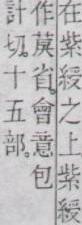 在紫綬之上紫綬
作莀省會意包
計切十五部